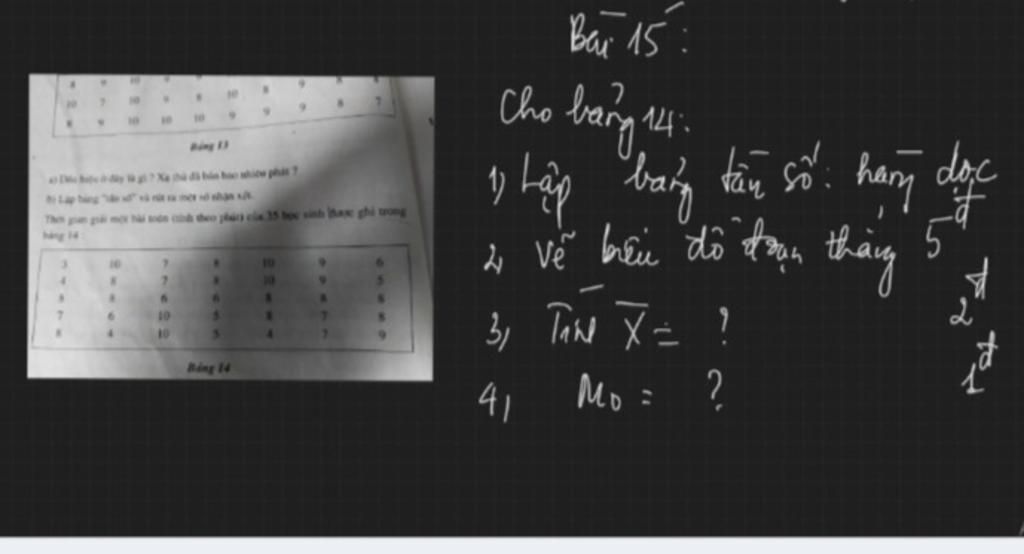 Bài 15:
10 7 10 9 8 10 8 9 8 7
8 9 10 10 10 9 9 9
Bảng 13
a) Dấu hiệu ở đây là gì ? Xạ thủ đã bắn bao nhiêu phát ?
b) Lập bảng "tần số" và rút ra một số nhận xét.
Thời gian giải một bài toán (tính theo phút) của 35 học sinh được ghi trong
bảng 14 :
3 10 7 8 10 9 6
4 8 7 8 10 9 5
8 8 6 6 8 8 8
7 6 10 5 8 7 8
8 4 10 5 4 7 9
Bảng 14
Cho bảng 14:
1) Lập bảng tần số: hàng dọc
2, Vẽ biểu đồ đoạn thẳng 5đ
3, Tính X = ? 2đ
4, Mo = ? 1đ